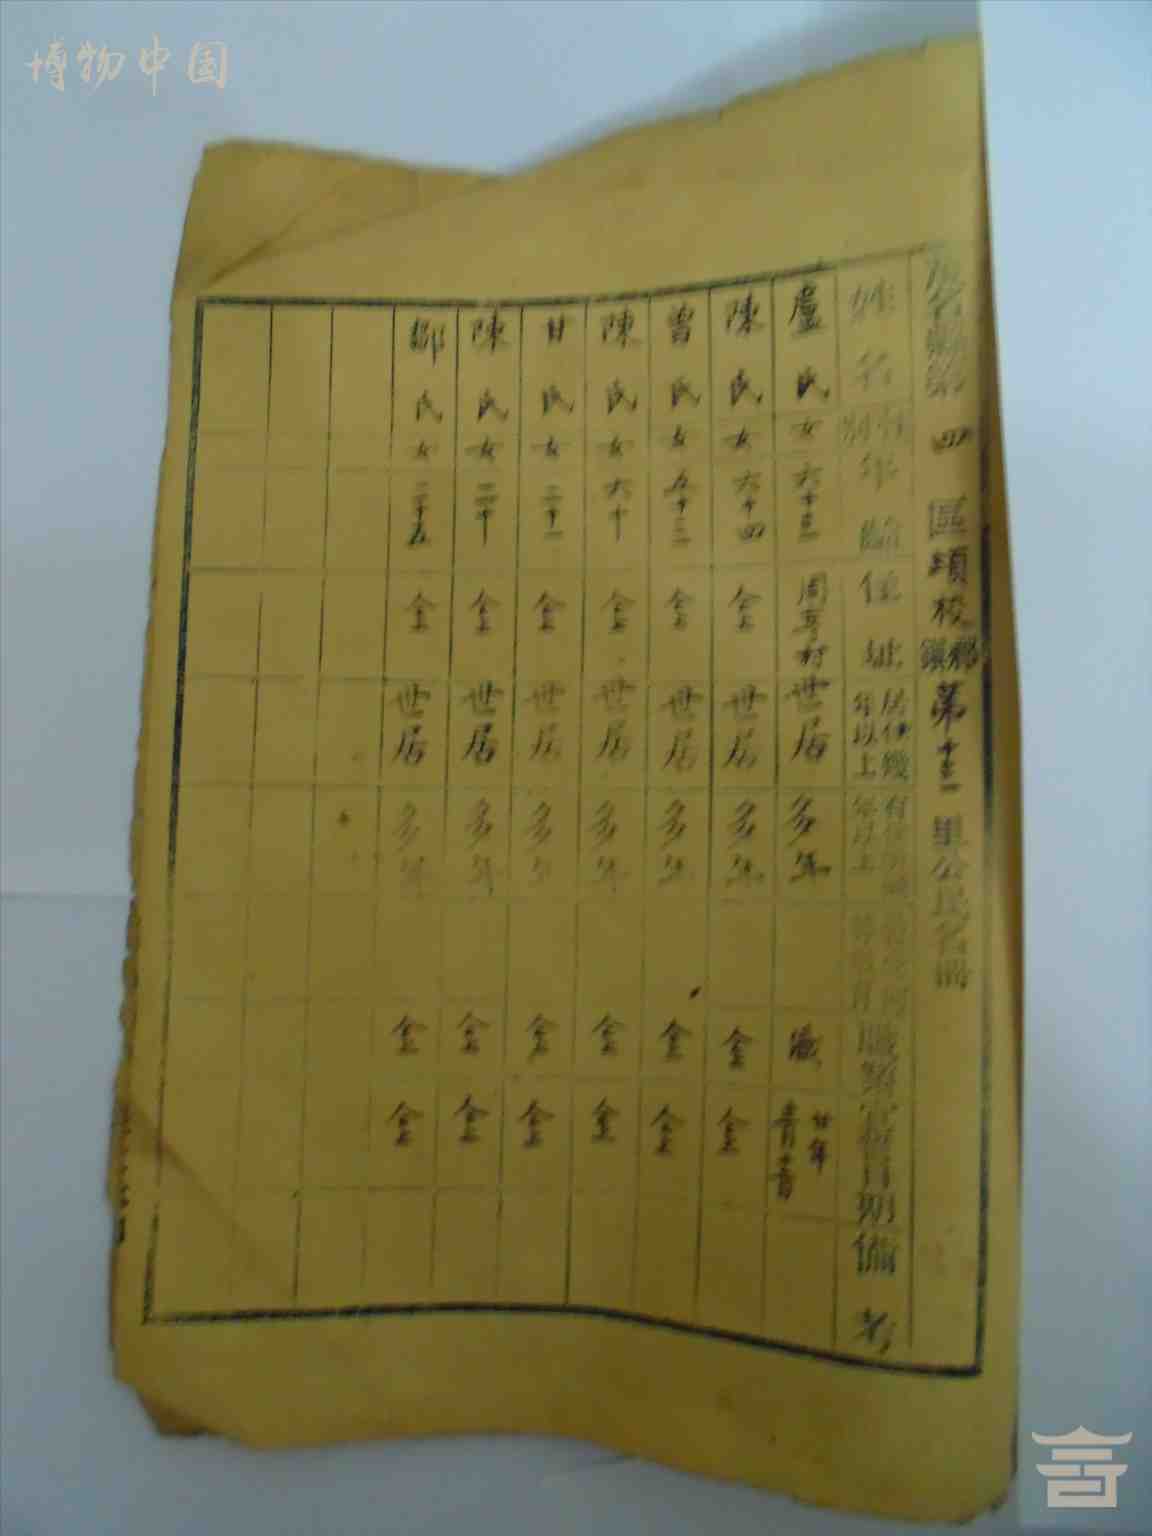 博物中国
茂名縣第四區頃校鄉鎮第十三里公民名冊
姓名
性別
年齡
住址
居住幾年以上
有住所幾年以上
職業
宣誓日期
備考
盧氏 女 六十三 周亨村 世居 多年 農 廿年
陳氏 女 六十四 仝 世居 多年 仝 仝
曾氏 女 五十三 仝 世居 多年 仝 仝
陳氏 女 六十 仝 世居 多年 仝 仝
甘氏 女 二十一 仝 世居 多年 仝 仝
陳氏 女 二十 仝 世居 多年 仝 仝
鄒氏 女 二十五 仝 世居 多年 仝 仝